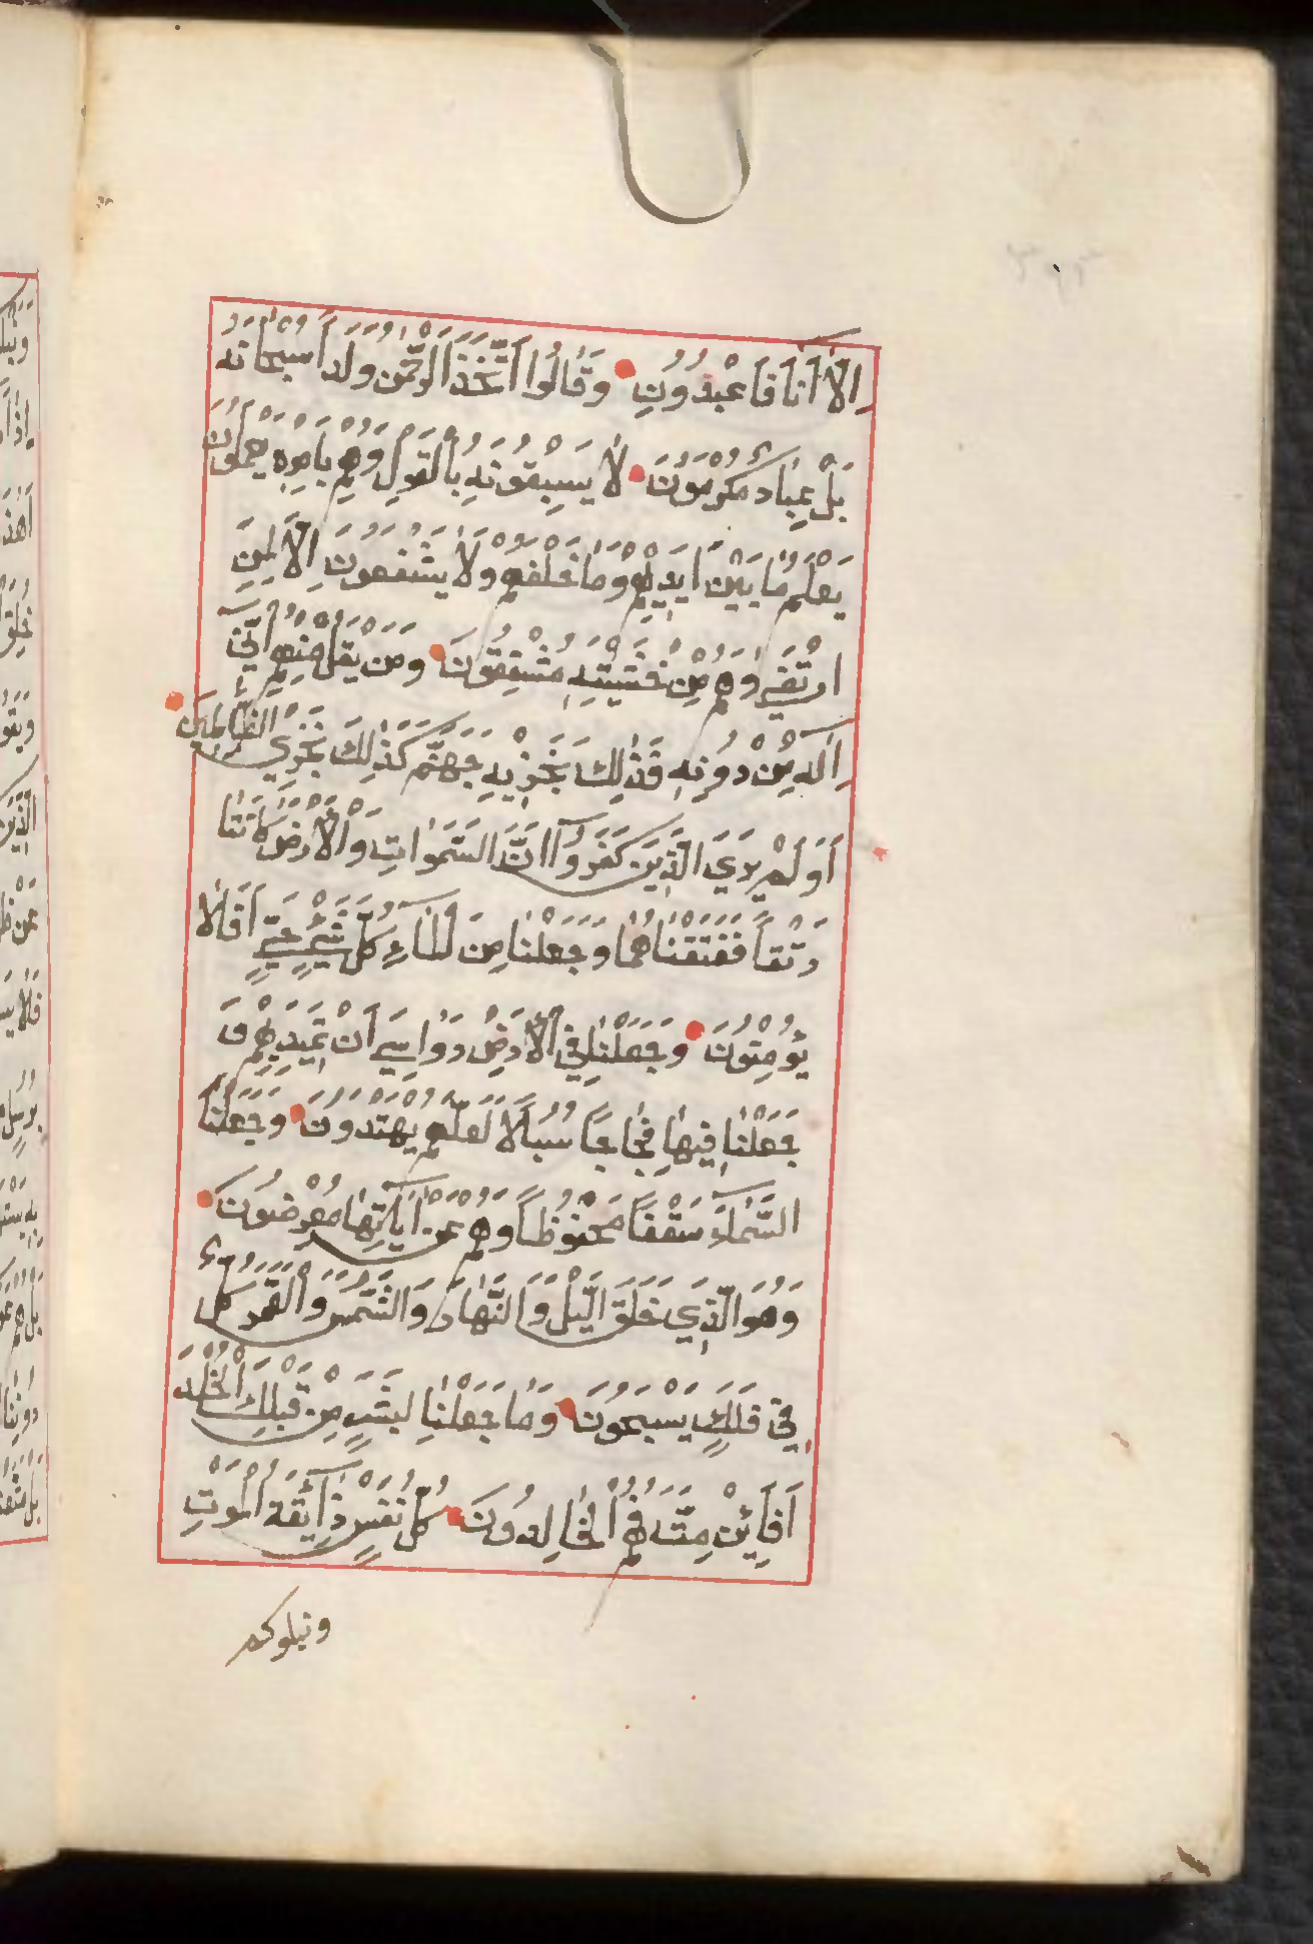 اِلَّا أَنَا فَاعْبُدُونِ وَقَالُوا اتَّخَذَ الرَّحْمٰنُ وَلَدًا سُبْحَانَهُ
بَلْ عِبَادٌ مُكْرَمُونَ لَا يَسْبِقُونَهُ بِالْقَوْلِ وَهُمْ بِأَمْرِهِ يَعْمَلُونَ
يَعْلَمُ مَا بَيْنَ أَيْدِيهِمْ وَمَا خَلْفَهُمْ وَلَا يَشْفَعُونَ اِلَّا لِمَنِ
ارْتَضَى وَهُمْ مِنْ خَشْيَتِهِ مُشْفِقُونَ وَمَنْ يَقُلْ مِنْهُمْ اِنِّي
اِلَهٌ مِنْ دُونِهِ فَذٰلِكَ نَجْزِيهِ جَهَنَّمَ كَذٰلِكَ نَجْزِي الظَّالِمِينَ
أَوَلَمْ يَرَى الَّذِينَ كَفَرُوا اَنَّ السَّمٰوَاتِ وَالْأَرْضَ كَانَتَا
رَتْقًا فَفَتَقْنَاهُمَا وَجَعَلْنَا مِنَ الْمَاءِ كُلَّ شَيْءٍ حَيٍّ أَفَلَا
يُؤْمِنُونَ وَجَعَلْنَا فِي الْأَرْضِ رَوَاسِيَ اَنْ تَمِيدَ بِهِمْ وَ
جَعَلْنَا فِيهَا فِجَاجًا سُبُلًا لَعَلَّهُمْ يَهْتَدُونَ وَجَعَلْنَا
السَّمَاءَ سَقْفًا مَحْفُوظًا وَهُمْ عَنْ اٰيَاتِهَا مُعْرِضُونَ
وَهُوَ الَّذِي خَلَقَ الَّيْلَ وَالنَّهَارَ وَالشَّمْسَ وَالْقَمَرَ كُلٌّ
فِي فَلَكٍ يَسْبَحُونَ وَمَا جَعَلْنَا لِبَشَرٍ مِنْ قَبْلِكَ الْخُلْدَ
أَفَاِئِنْ مِتَّ فَهُمُ الْخَالِدُونَ كُلُّ نَفْسٍ ذَائِقَةُ الْمَوْتِ
ونبلوكم